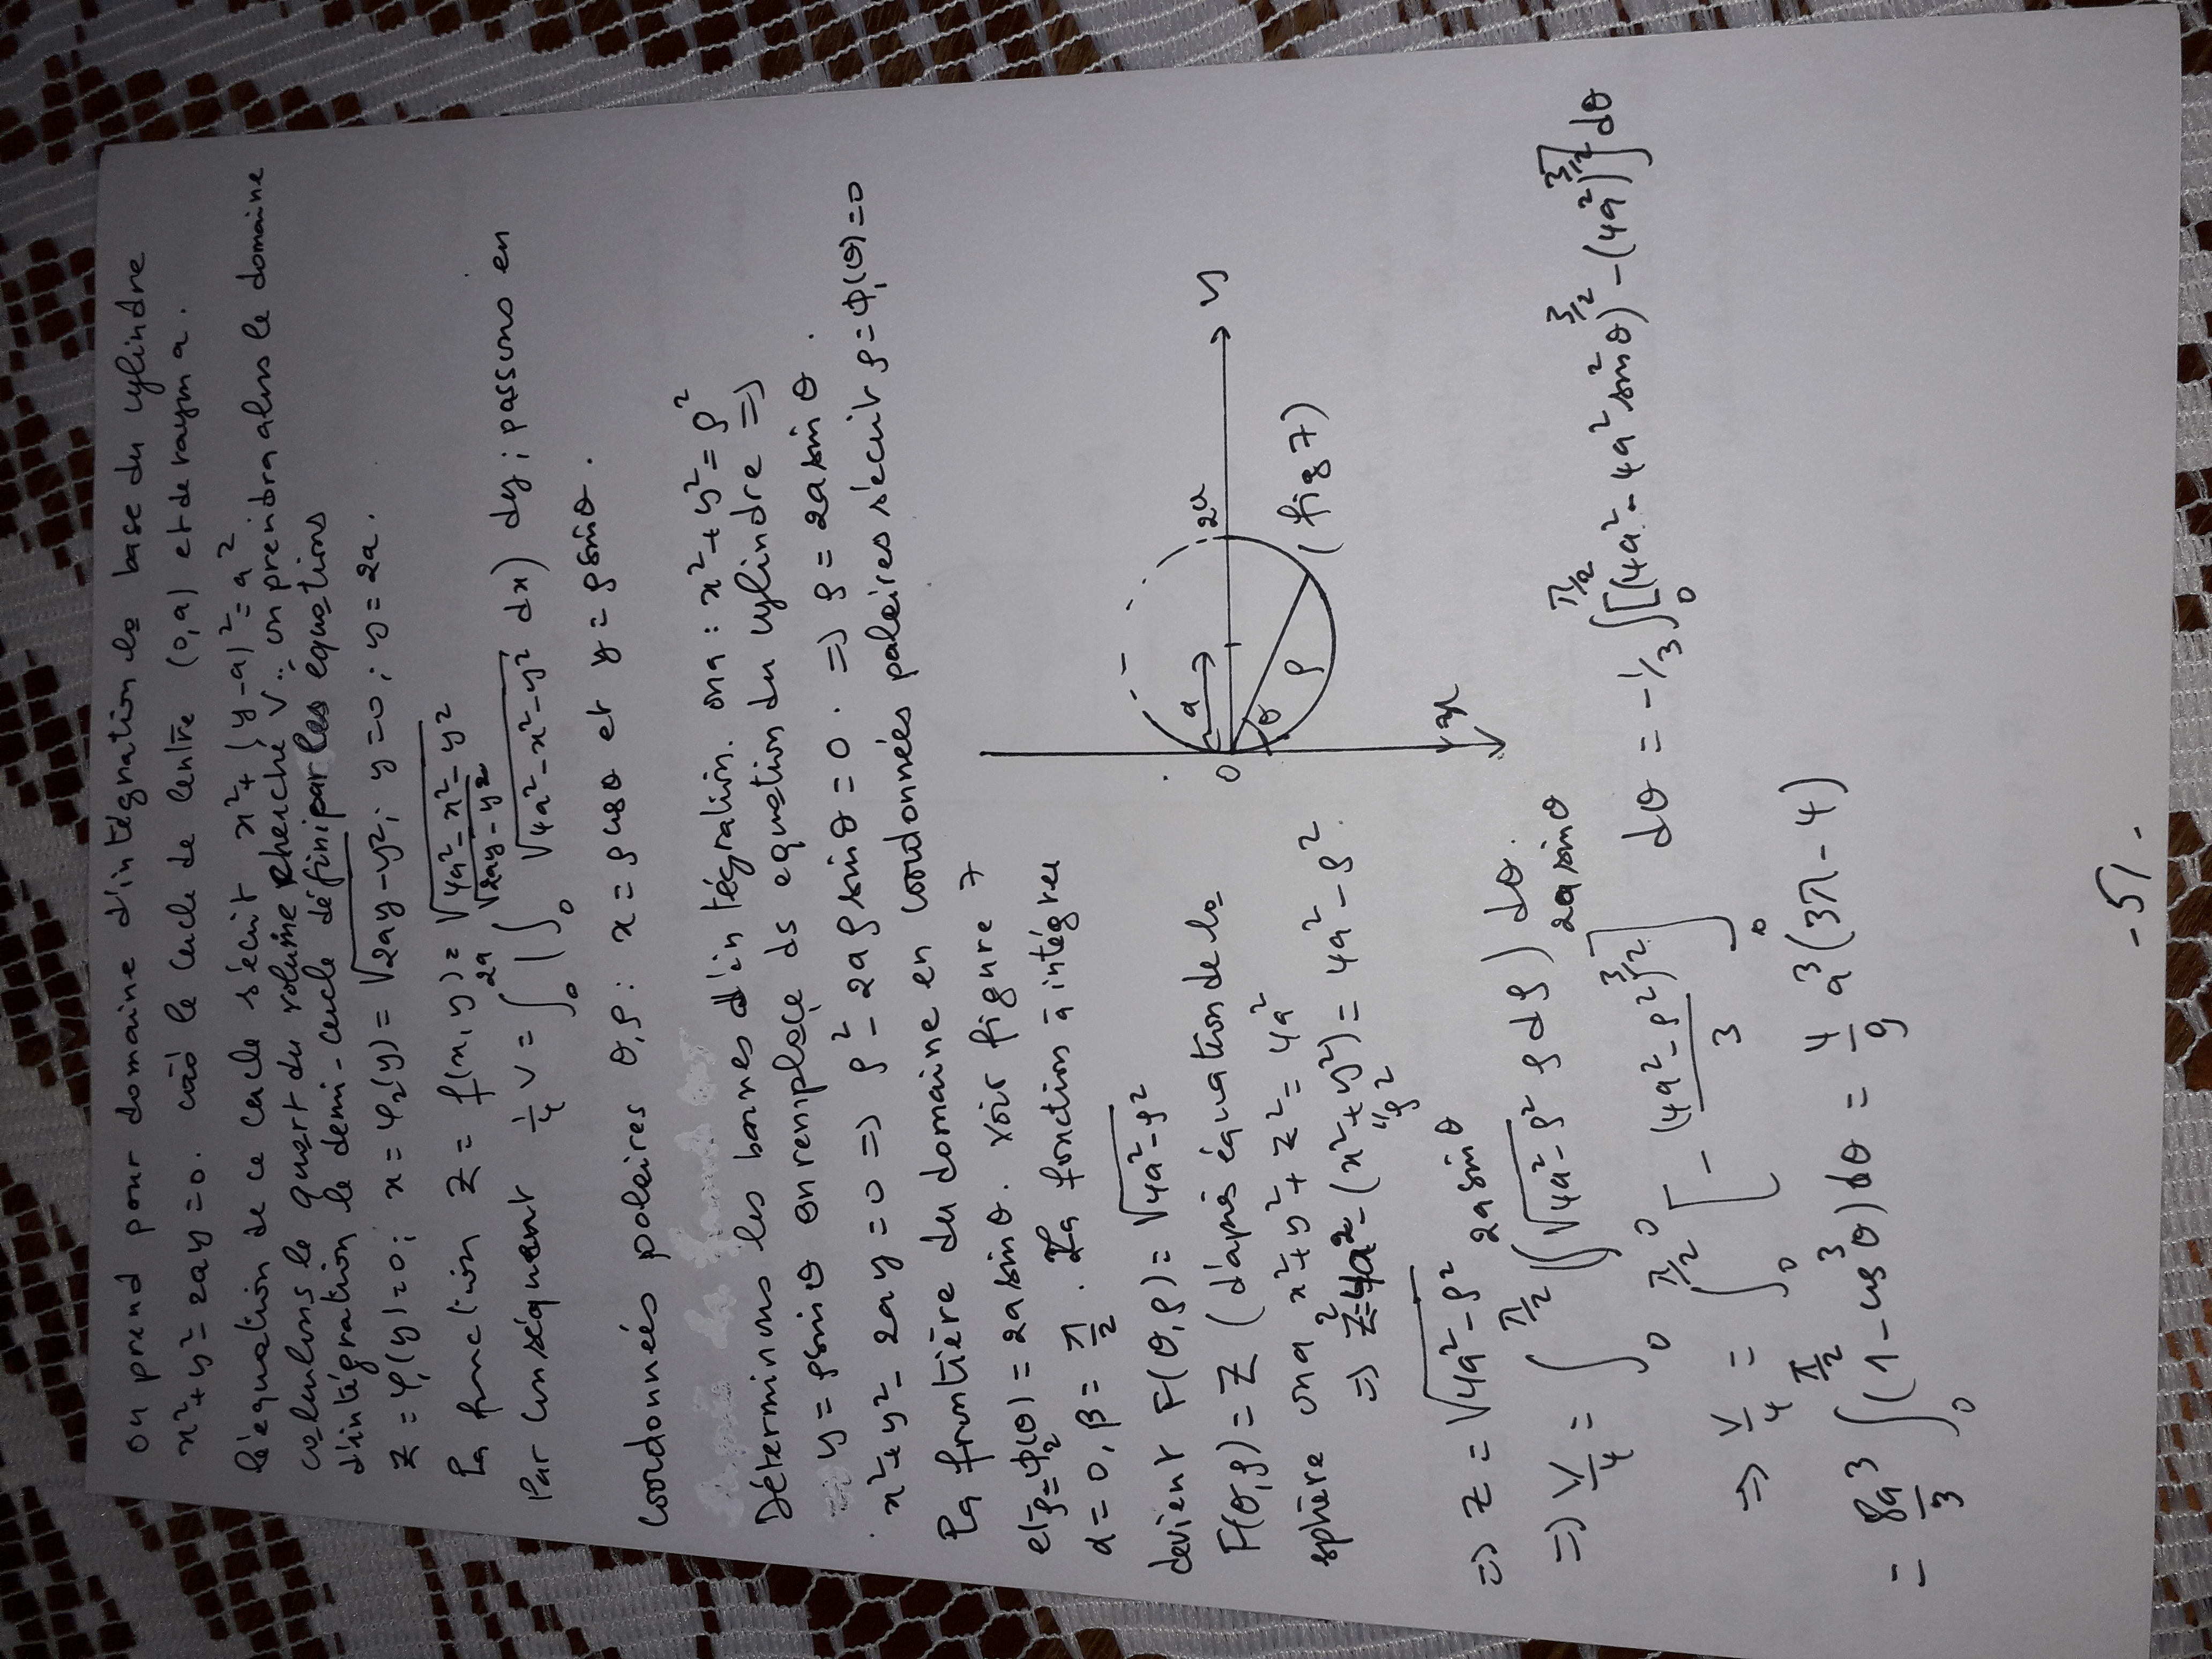 on prend pour domaine d'intégration la base du cylindre
x²+y²-2ay=0. càd le cercle de centre (0,a) et de rayon a.
l'équation de ce cercle s'écrit x²+(y-a)²=a²
calculons le quart du volume cherché V: on prendra alors le domaine
d'intégration le demi-cercle défini par les équations
x = φ₁(y)=0; x = φ₂(y) = √(2ay-y²); y=0; y=2a.
La fonction z = f(x,y) = √(4a²-x²-y²)
Par conséquent 1/4 V = ∫₀^{2a} (∫₀^{√(2ay-y²)} √(4a²-x²-y²) dx) dy; passons en
coordonnées polaires θ,ρ: x = ρ cosθ et y = ρ sinθ.
Déterminons les bornes d'intégration. on a: x²+y²=ρ²
y = ρsinθ on remplace ds equation du cylindre ⇒
x²+y²-2ay=0 ⇒ ρ²-2aρ sinθ=0. ⇒ ρ=2a sinθ.
La frontière du domaine en coordonnées polaires s'écrit ρ=Φ₁(θ)=0
et ρ=Φ₂(θ)=2a sinθ. voir figure 7
α=0, β=π/2. La fonction à intégrer
devient F(θ,ρ)=√(4a²-ρ²)
F(θ,ρ)=Z (d'après équation de la
sphère on a x²+y²+z²=4a²
⇒ z²=4a²-(x²+y²)=4a²-ρ².
"ρ²
⇒ Z=√(4a²-ρ²)
⇒ V/4 = ∫₀^{π/2} (∫₀^{2a sinθ} √(4a²-ρ²) ρ dρ) dθ.
⇒ V/4 = ∫₀^{π/2} [-(4a²-ρ²)^{3/2}/3]₀^{2a sinθ} dθ = -1/3 ∫₀^{π/2} [(4a²-4a² sin²θ)^{3/2} - (4a²)^{3/2}] dθ
= 8a³/3 ∫₀^{π/2} (1-cos³θ) dθ = 4/9 a³(3π-4)
0
a
2a
y
θ
ρ
x
(fig 7)
-51-